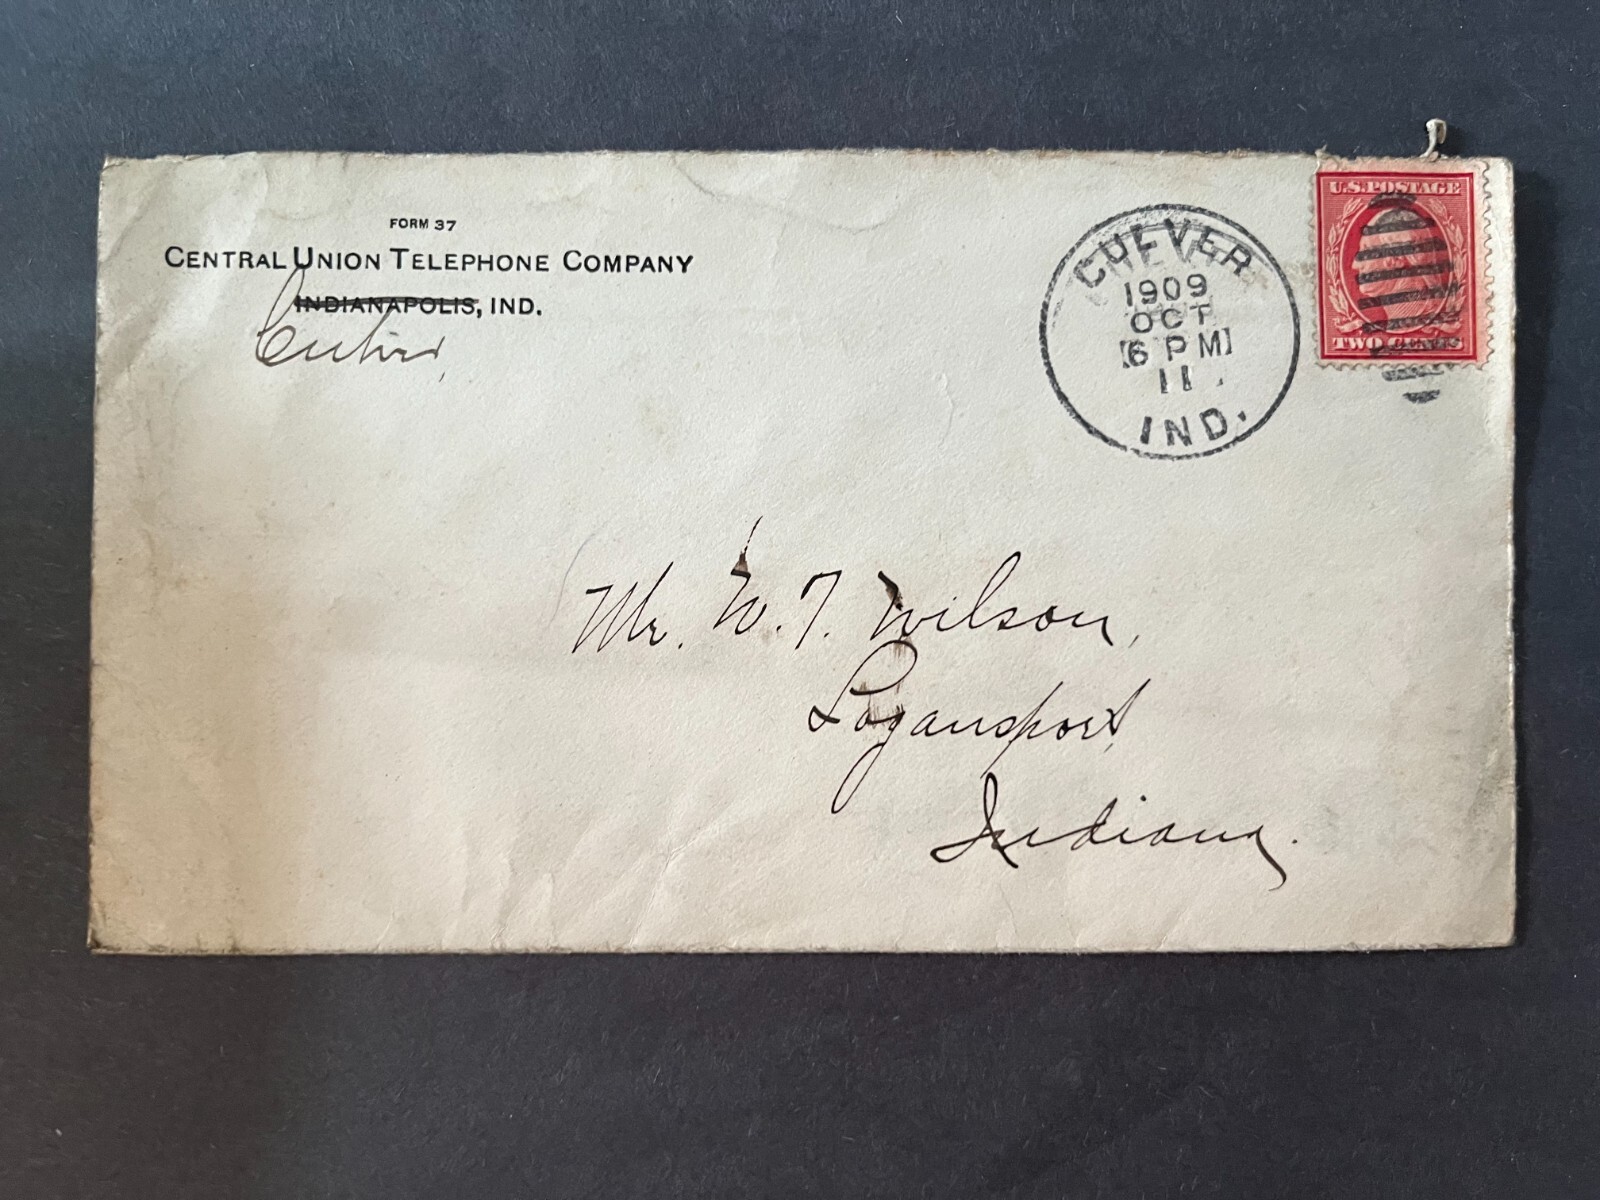 FORM 37
CENTRAL UNION TELEPHONE COMPANY
INDIANAPOLIS, IND.
Culver,
CULVER
1909
OCT
[6 PM]
11
IND.
U.S. POSTAGE
TWO CENTS
Mr. W. T. Wilson,
Logansport,
Indiana.